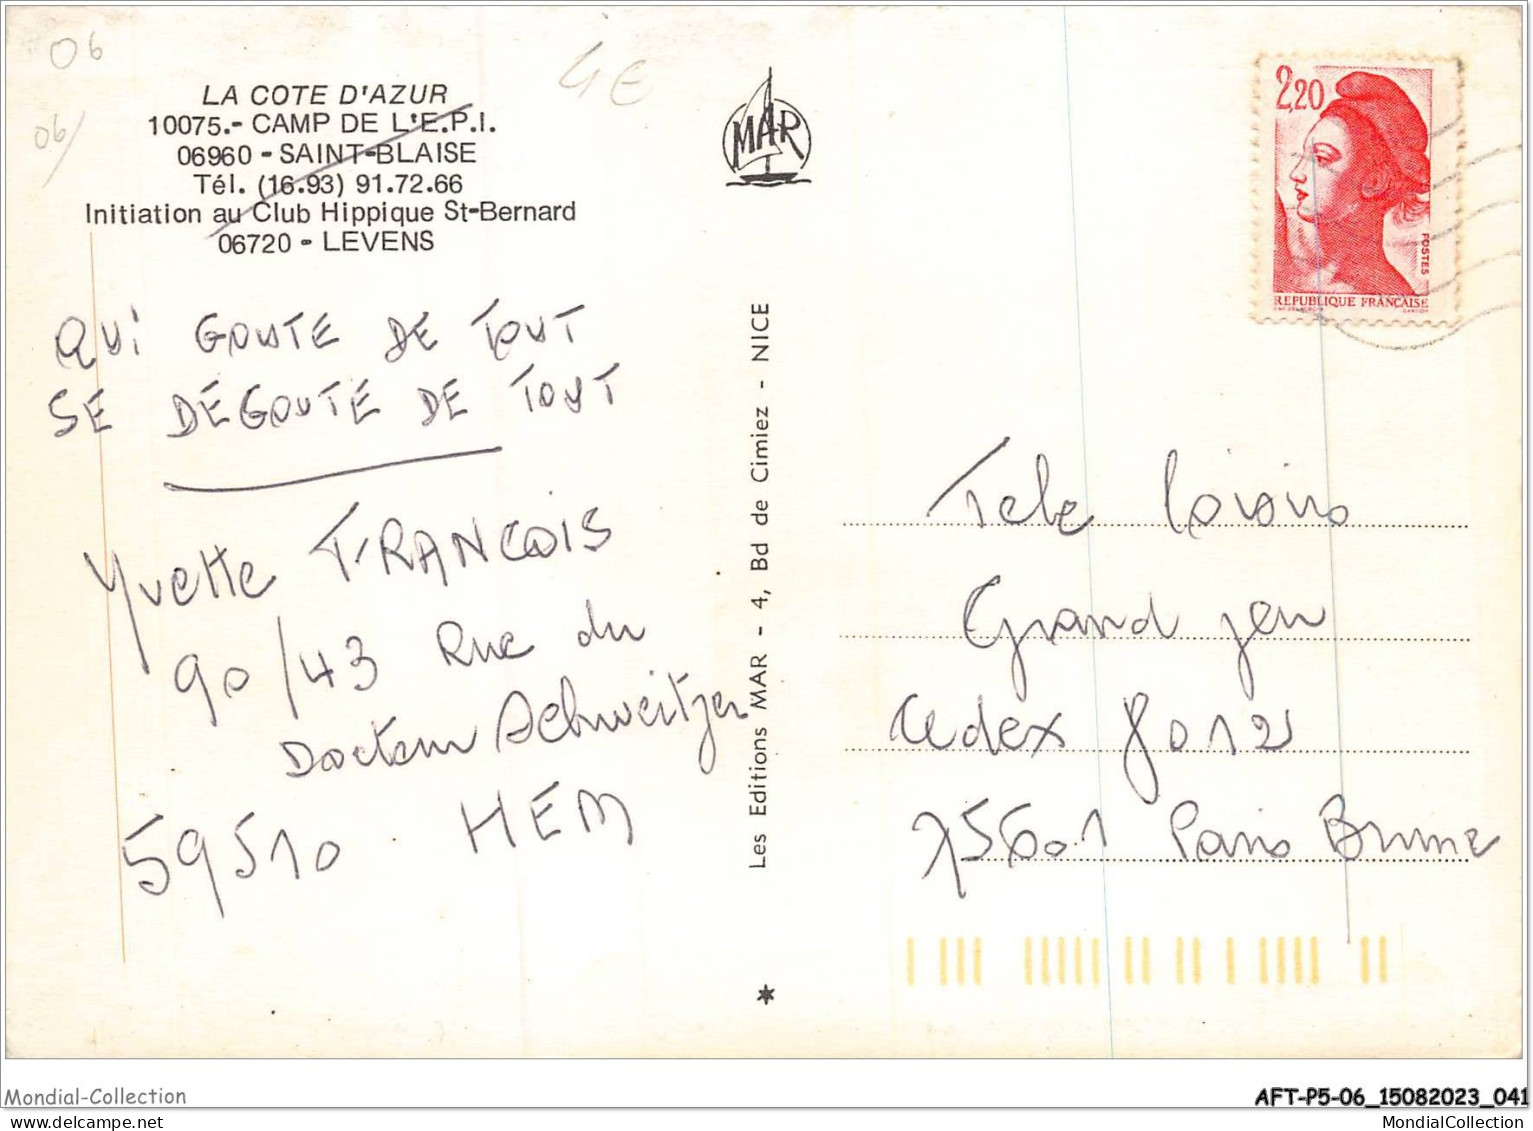 06
4€
06/
LA COTE D'AZUR
10075.- CAMP DE L'E.P.I.
06960 - SAINT-BLAISE
Tél. (16.93) 91.72.66
Initiation au Club Hippique St-Bernard
06720 - LEVENS
QUI GOUTE DE TOUT
SE DÉGOUTE DE TOUT
Yvette FRANCOIS
90/43 Rue du
Docteur Schweitzer
59510 HEM
Les Editions MAR - 4, Bd de Cimiez - NICE
MAR
2,20
POSTES
REPUBLIQUE FRANÇAISE
Tele loisirs
Grand jeu
Cedex 8012
75601 Paris Brune
Mondial-Collection
AFT-P5-06_15082023_041
MondialCollection